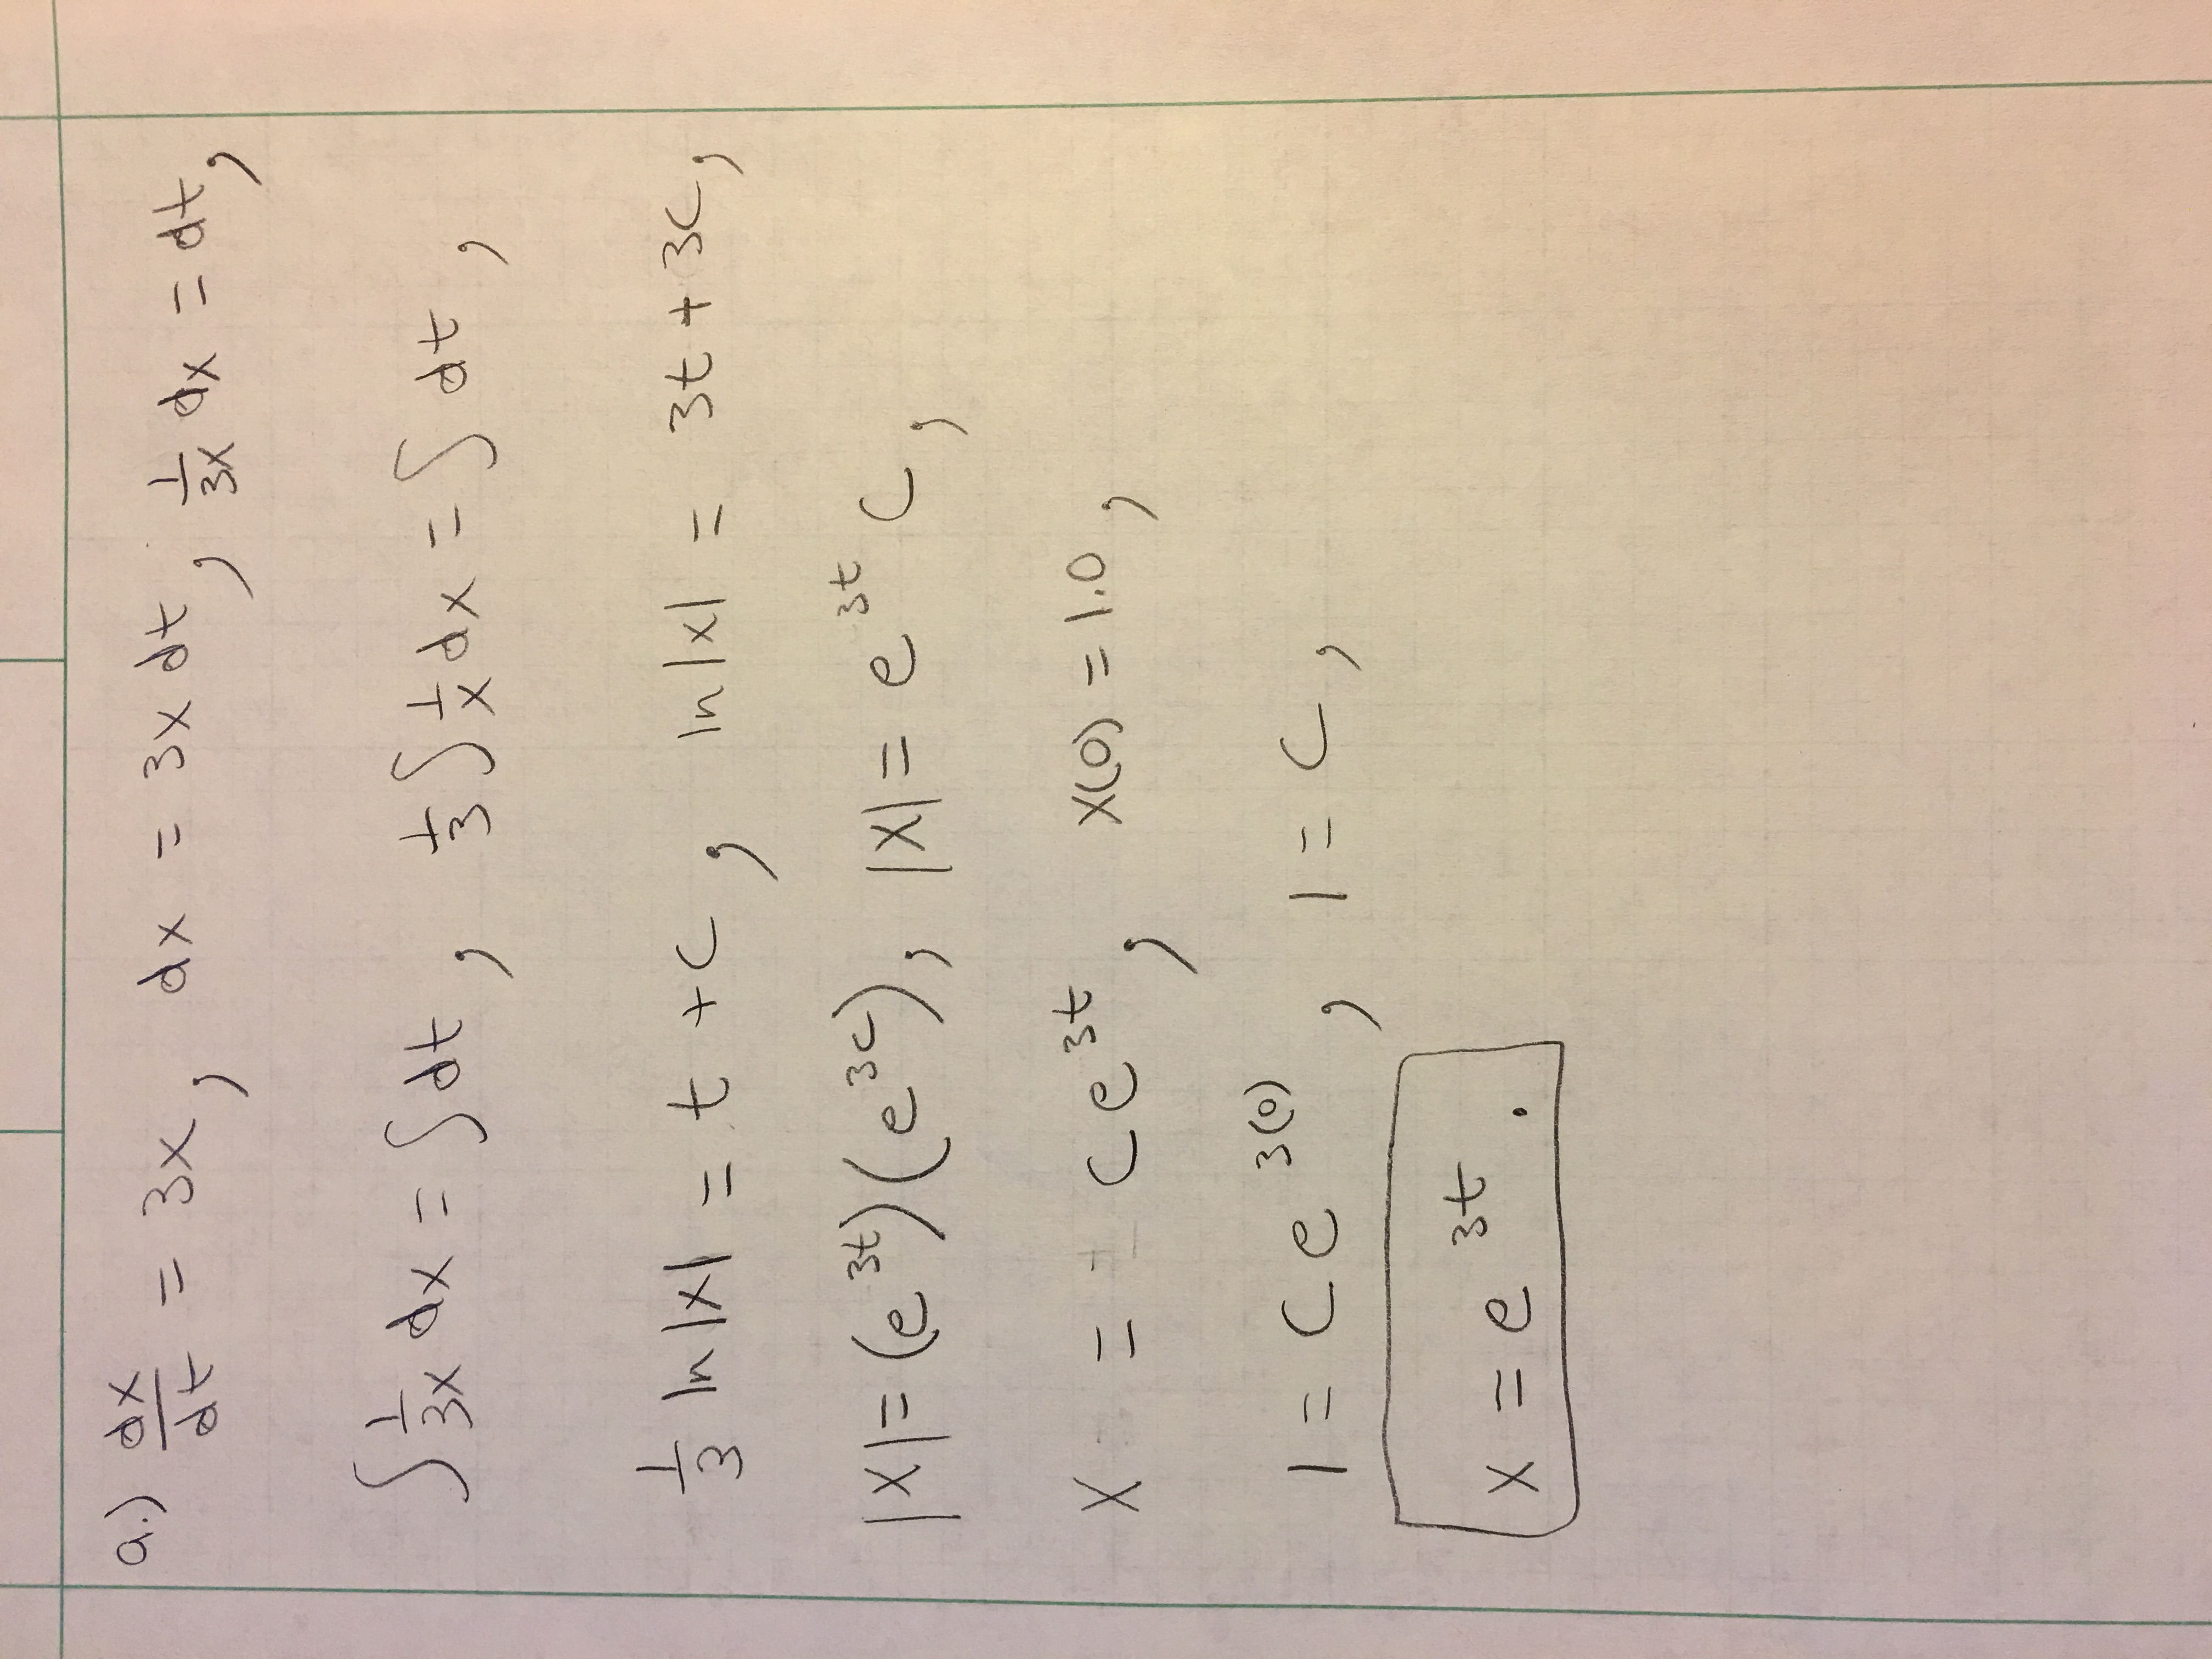 a.) dx/dt = 3x, dx = 3x dt, 1/3x dx = dt,
∫ 1/3x dx = ∫ dt, 1/3 ∫ 1/x dx = ∫ dt,
1/3 ln|x| = t + c, ln|x| = 3t + 3c,
|x| = (e^3t)(e^3c), |x| = e^3t c,
x = ce^3t, x(0) = 1.0,
1 = ce^3(0), 1 = c,
x = e^3t.